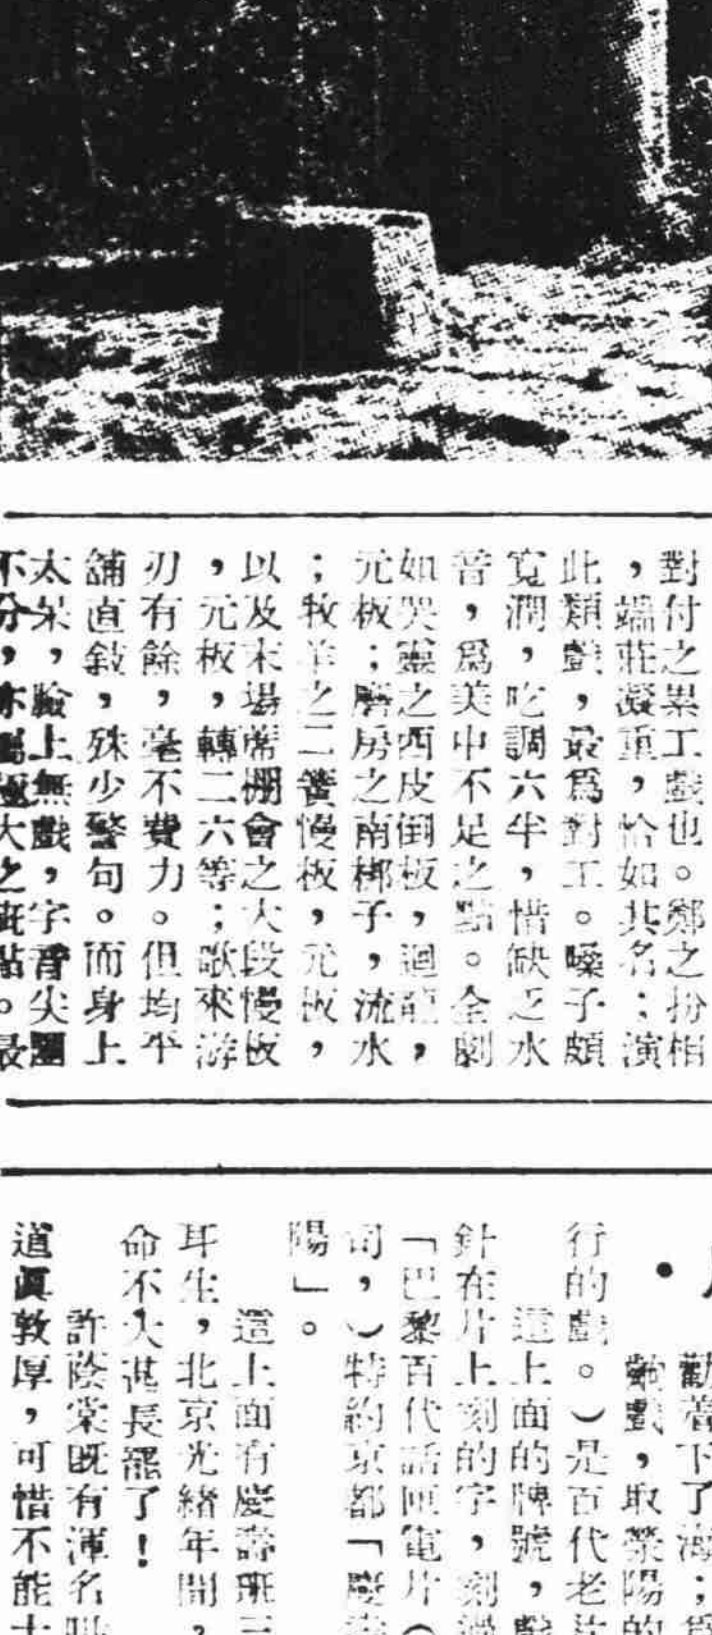 對付之累工戲也。鄭之扮相
，端莊凝重，恰如其名；演
此類戲，最爲對工。嗓子頗
寬潤，吃調六半，惜缺乏水
音，爲美中不足之點。全劇
如哭靈之西皮倒板，迴龍，
元板；磨房之南梆子，流水
；牧羊之二簧慢板，元板，
以及末場蓆棚會之大段慢板
，元板，轉二六等；歌來游
刃有餘，毫不費力。但均平
舖直敍，殊少警句。而身上
太呆，臉上無戲，字音尖團
不分，亦屬極大之疵點。最
勸着下了海；
戲，取滎陽的
行的戲。）是百代老
這上面的牌號，戲
針在片上刻的字，刻
「巴黎百代話匣電片（
司，）特約京都「慶
陽」。
這上面有慶壽班三
耳生，北京光緒年間，
命不大甚長罷了！
許蔭棠旣有渾名
道眞敦厚，可惜不能